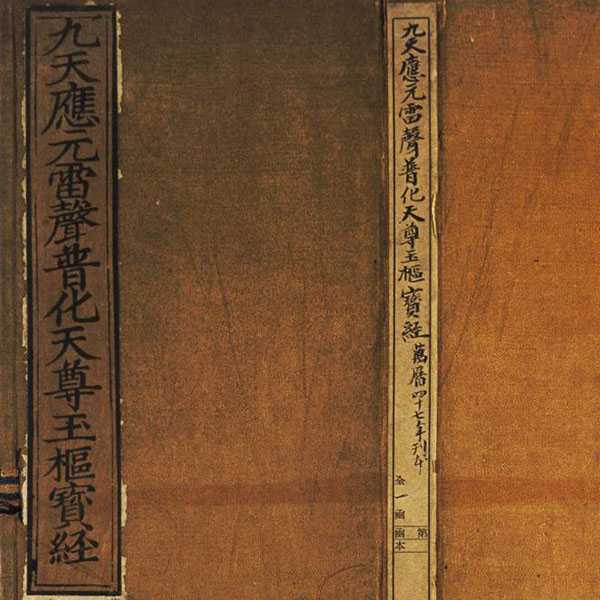 九天應元雷聲普化天尊玉樞寶經
九天應元雷聲普化天尊玉樞寶經 萬曆四十七年刊本
全一函
第
函本